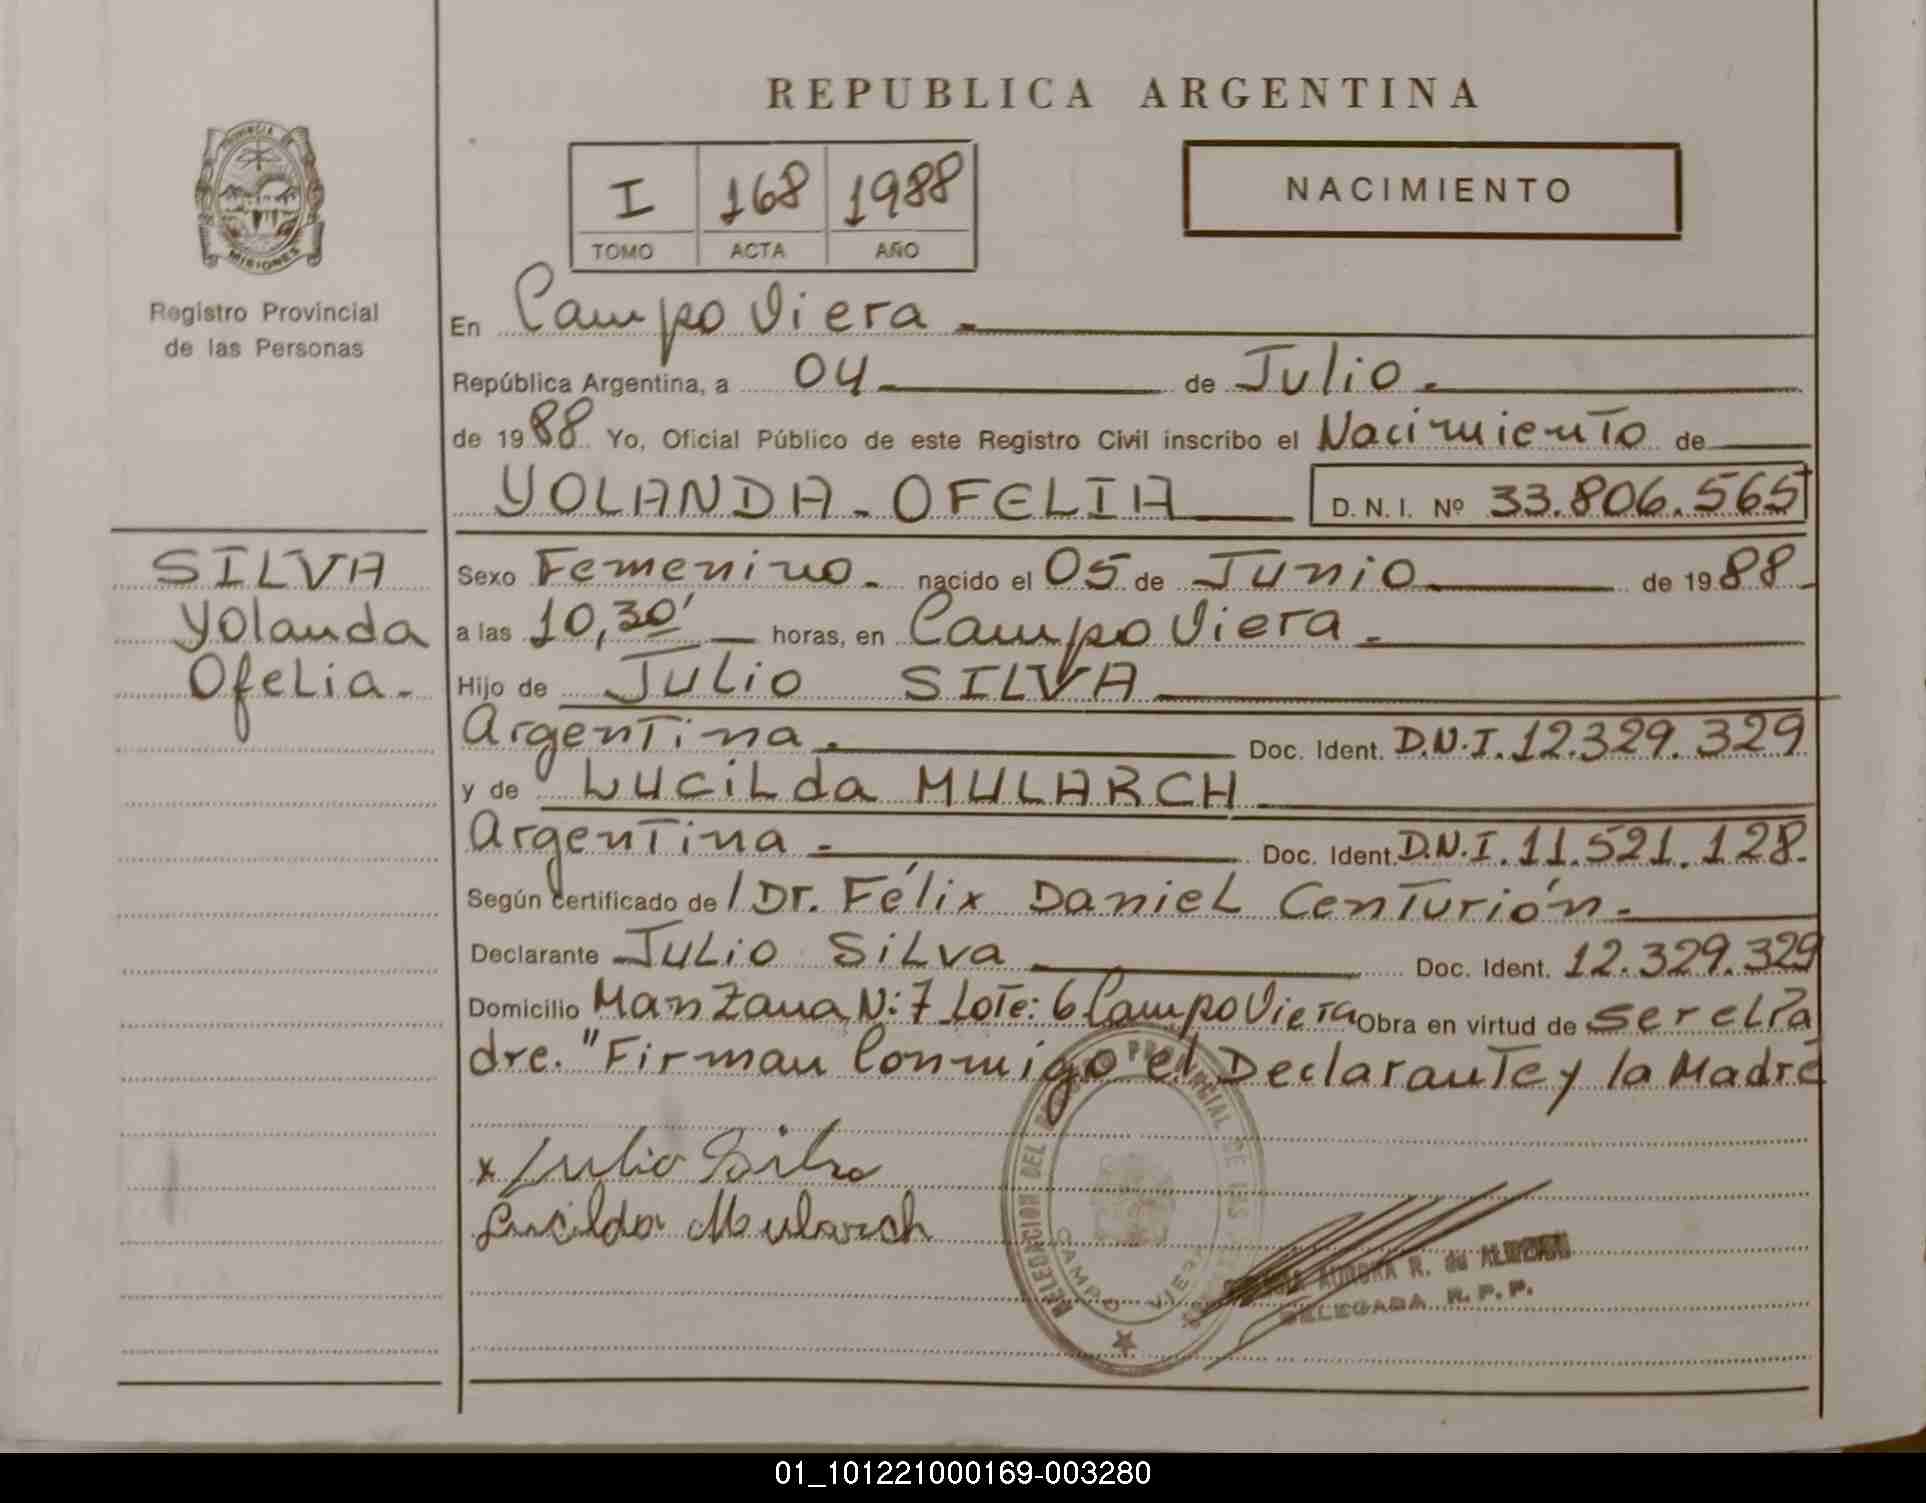 REPUBLICA ARGENTINA
PROVINCIA DE
MISIONES
Registro Provincial
de las Personas
I 168 1988
TOMO ACTA AÑO
NACIMIENTO
En Campo Viera
República Argentina, a 04 de Julio.
de 1988 Yo, Oficial Público de este Registro Civil inscribo el Nacimiento de
YOLANDA - OFELIA D. N. I. Nº 33.806.565
SILVA
Yolanda
Ofelia.
Sexo Femenino. nacido el 05 de Junio de 1988
a las 10,30' horas, en Campo Viera.
Hijo de Julio SILVA
Argentina. Doc. Ident. D.N.I. 12.329.329
y de Lucilda MULARCH
Argentina. Doc. Ident. D.N.I. 11.521.128.
Según certificado de l Dr. Félix Daniel Centurión.
Declarante Julio Silva Doc. Ident. 12.329.329
Domicilio Manzana N: 7 Lote: 6 Campo Viera Obra en virtud de ser el Pa
dre. "Firman Conmigo el Declarante y la Madre
x Julio Silva
Lucilda Mularch
PROVINCIAL DE LAS
CAMPO VIERA
AURORA R. de
DELEGADA R. P. P.
01_101221000169-003280